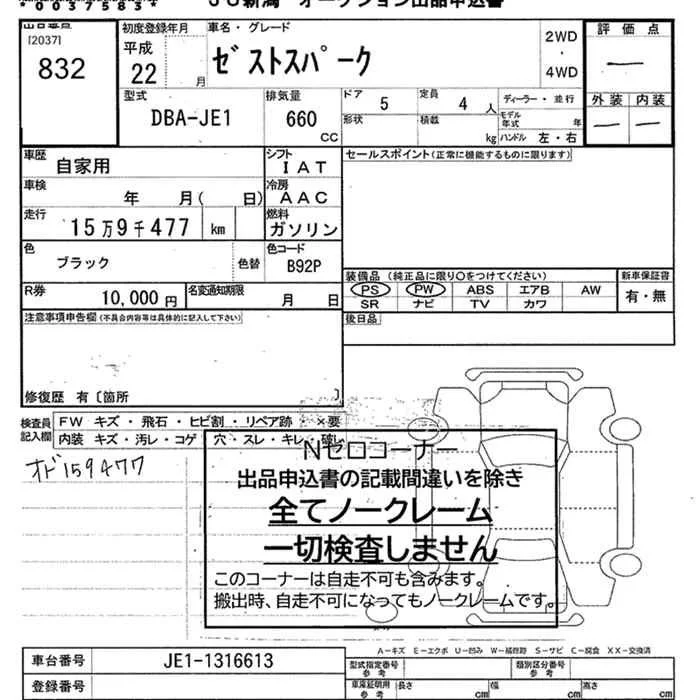 *0037583*
JU新潟 オークション出品申込書
出品番号
[2037]
832
初度登録年月
平成
22 月
車名・グレード
ゼストスパーク
2WD
・
4WD
評価点
―
型式
DBA-JE1
排気量
660
CC
ドア 5
定員 4 人
形状
積載 kg
ディーラー・並行
モデル年式 年
ハンドル 左・右
外装 内装
― ―
車歴
自家用
シフト
IAT
セールスポイント(正常に機能するものに限ります)
車検
年 月( 日)
冷房
AAC
走行
15万9千477 km
燃料
ガソリン
色
ブラック
色替
色コード
B92P
装備品 (純正品に限り○をつけてください)
新車保証書
PS PW ABS エアB AW
有・無
SR ナビ TV カワ
R券
10,000 円
名変通知期限
月 日
後日品
注意事項申告欄(不具合内容等は具体的に記入して下さい)
修復歴 有〔箇所 〕
検査員記入欄
FW キズ・飛石・ヒビ割・リペア跡・×要
内装 キズ・汚レ・コゲ・穴・スレ・キレ・破レ
オド159477
Nゼロコーナー
出品申込書の記載間違いを除き
全てノークレーム
一切検査しません
このコーナーは自走不可も含みます。
搬出時、自走不可になってもノークレームです。
A－キズ E－エクボ U－凹み W－補修跡 S－サビ C－腐食 XX－交換済
車台番号
JE1-1316613
型式指定番号
参考
類別区分番号
参考
登録番号
車庫証明用
参考
長さ cm
幅 cm
高さ cm